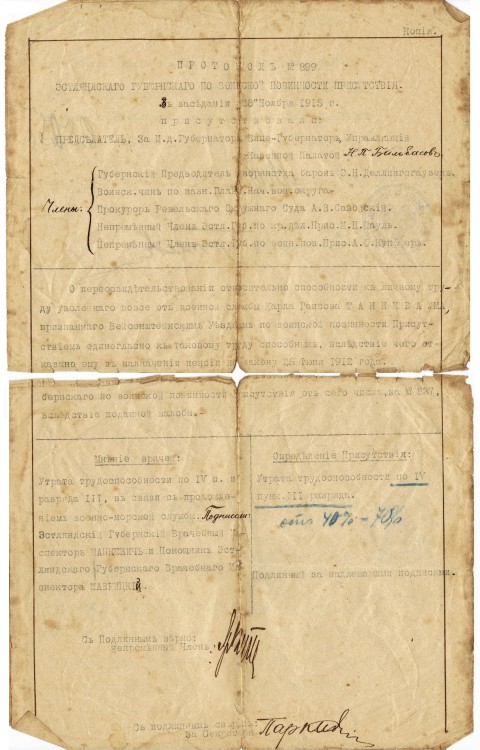 Копія.
ПРОТОКОЛЪ № 899
ЭСТЛЯНДСКАГО ГУБЕРНСКАГО ПО ВОИНСКОЙ ПОВИННОСТИ ПРИСУТСТВІЯ.
Въ засѣданіи Ноября 1913 г.
присутствовали:
ПРЕДСѢДАТЕЛЬ, За И.д.Губернатора Вице-Губернаторъ, Управляющій
Казенной Палатой Н.П.Бильбасовъ
Члены:
Губернскій Предводитель дворянства баронъ Э.Н.Деллингсгаузенъ.
Воинск.чинъ по назн. Нач. воен.округа.
Прокуроръ Ревельскаго Окружнаго Суда А.В.
Непремѣнный Членъ Эстл.Губ.по кр.дѣл.Прис.
Непремѣнный Членъ Эстл.Губ.по воин.пов.Прис.А.
О переосвидѣтельствованіи относительно способности къ личному тру-
ду уволеннаго вовсе отъ военной службы Карла ТАННЕБАУМА,
признаннаго Везенбергскимъ Уѣзднымъ по воинской повинности Присут-
ствіемъ единогласно къ таковому труду способнымъ, вслѣдствіе чего от-
казано ему въ назначеніи пенсіи по закону 25 Іюня 1912 года.
бернскаго по воинской повинности Присутствія отъ сего числа, за № 897,
вслѣдствіе поданной жалобы.
Мнѣніе врачей:
Утрата трудоспособности по IV п. и
разряда III, въ связи съ прохожде-
ніемъ военно-морской службы. Подписали:
Эстляндскій Губернскій Врачебный Ин-
спекторъ и Помощникъ Эст-
ляндскаго Губернскаго Врачебнаго Ин-
спектора
Опредѣленіе Присутствія:
Утрата трудоспособности по IV
пунк. III разряда.
отъ 40% - 70%
Подлинный за надлежащими подписями.
Съ подлиннымъ вѣрно:
Непремѣнный Членъ:
Съ подлиннымъ
За Секретаря